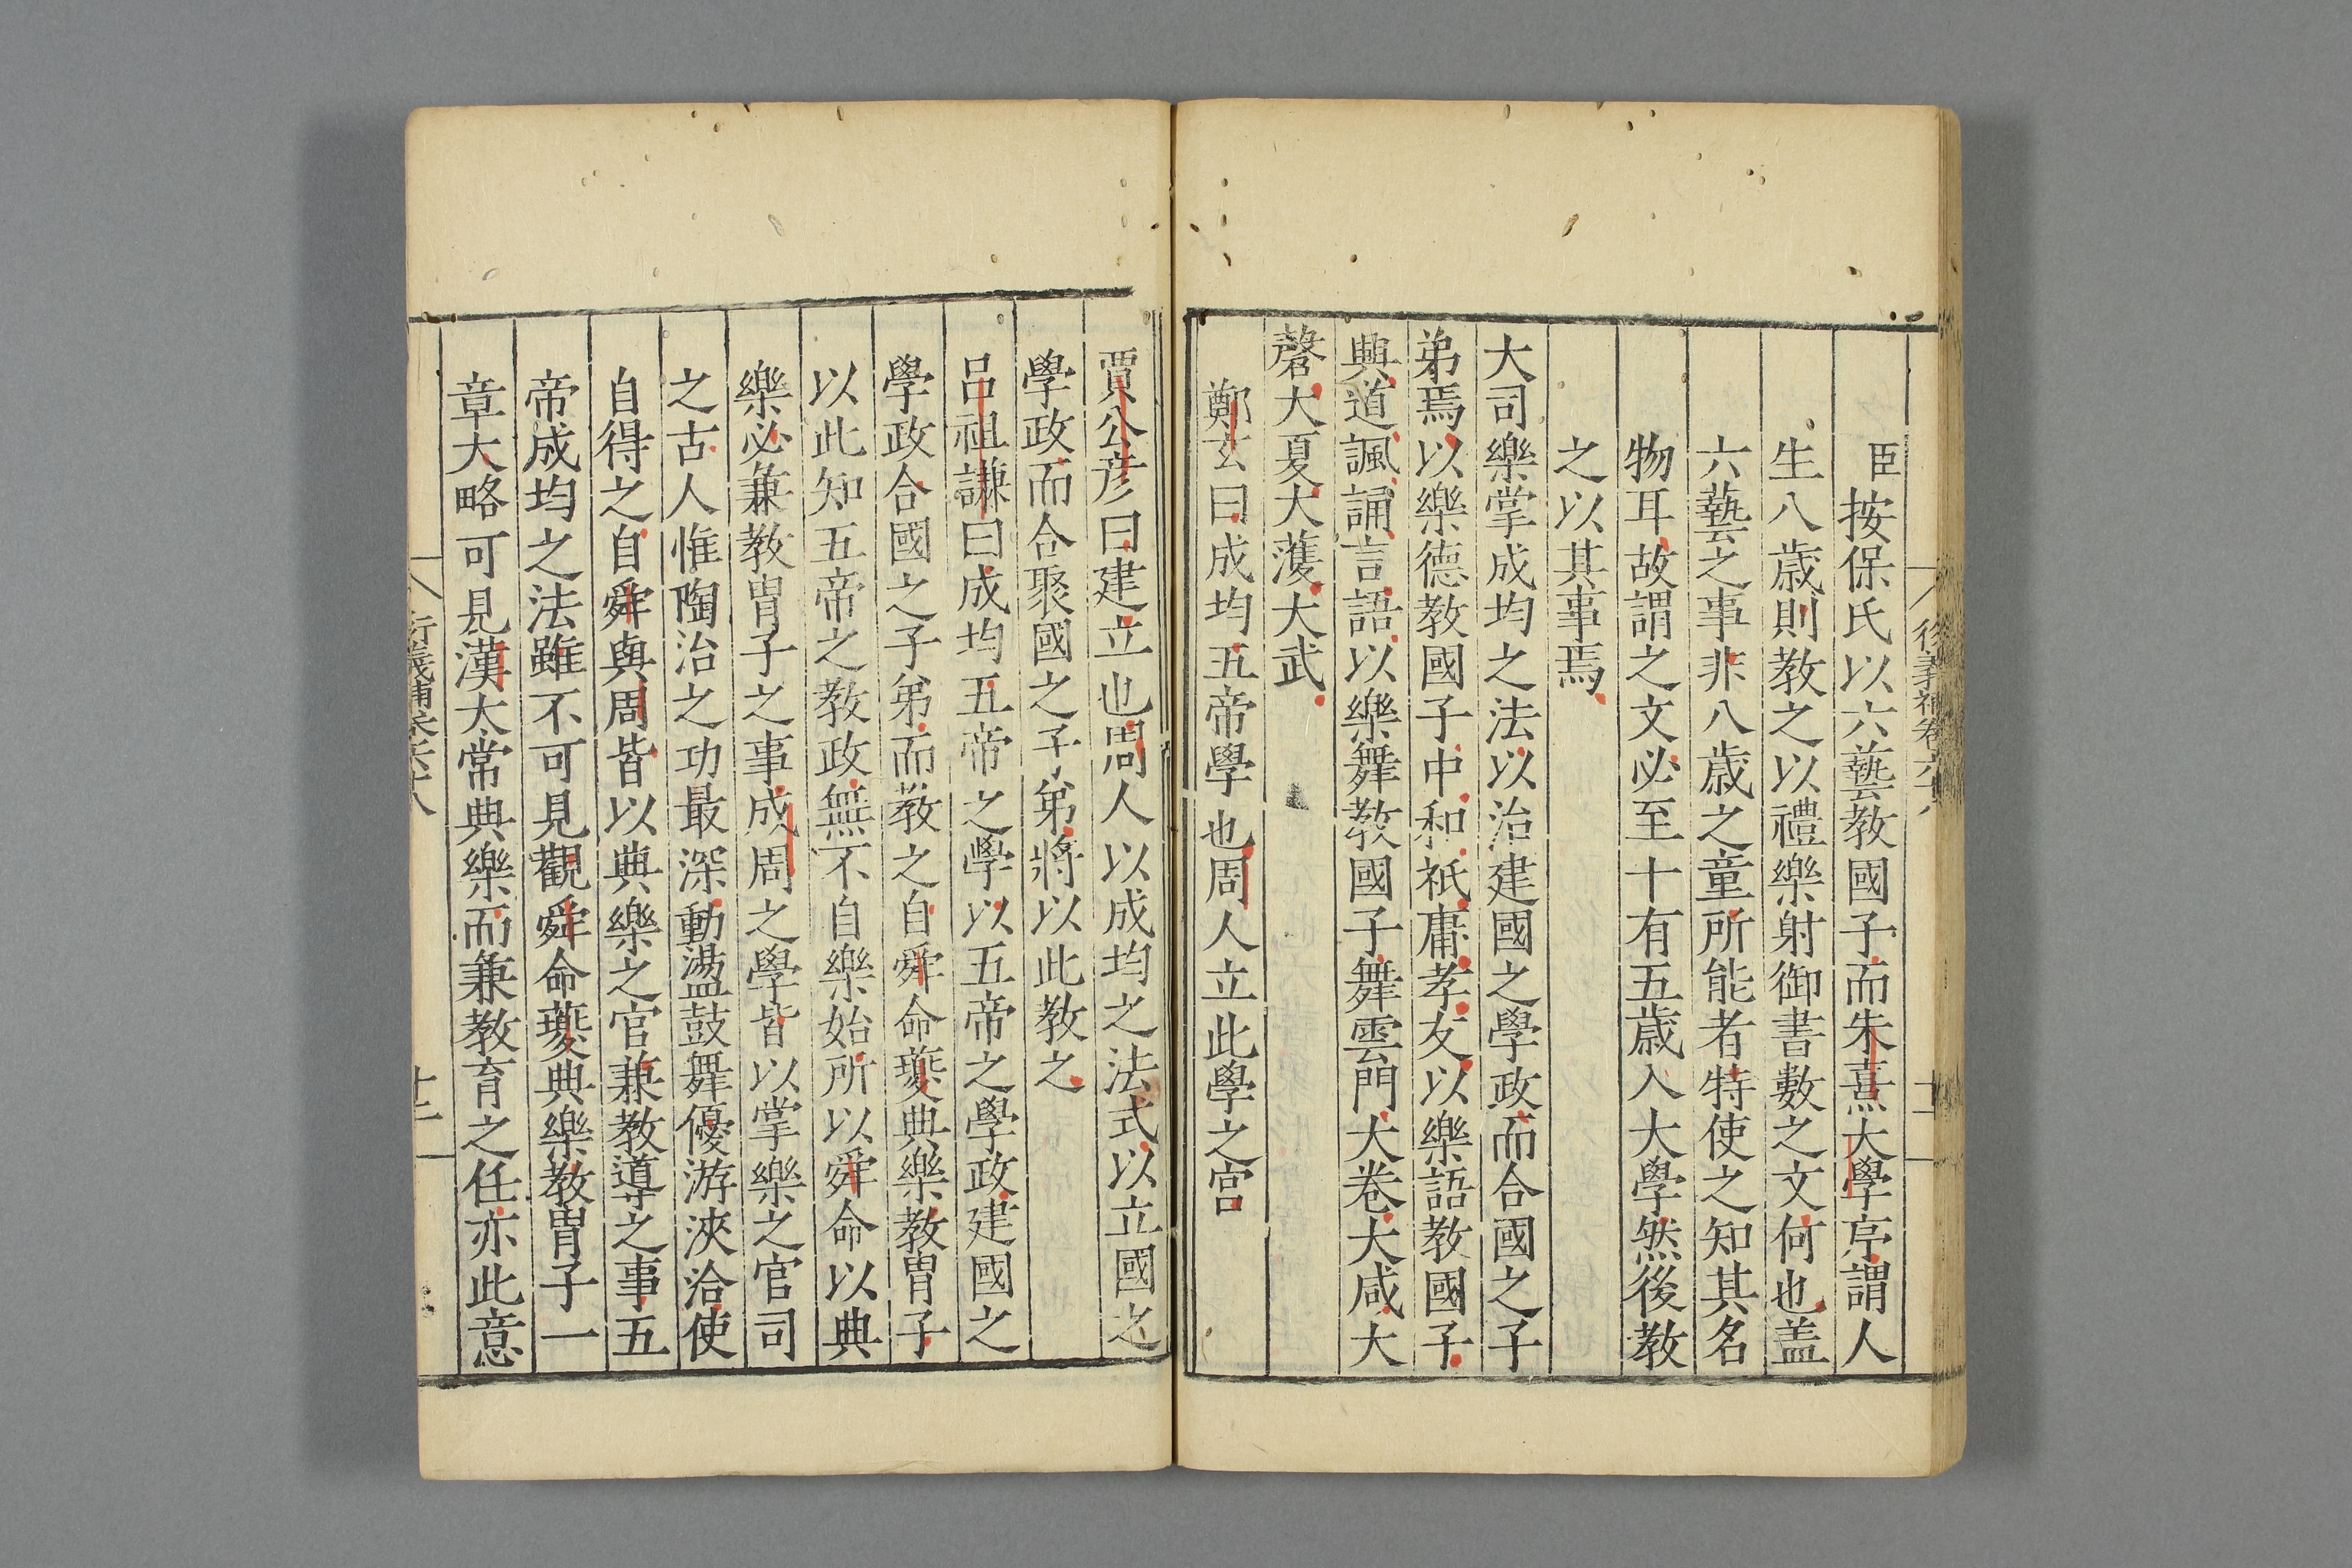 臣按保氏以六藝教國子而朱熹大學序謂人
生八歲則教之以禮樂射御書數之文何也盖
六藝之事非八歲之童所能者特使之知其名
物耳故謂之文必至十有五歲入大學然後教
之以其事焉
大司樂掌成均之法以治建國之學政而合國之子
弟焉以樂德教國子中和祇庸孝友以樂語教國子
興道諷誦言語以樂舞教國子舞雲門大卷大咸大
磬大夏大濩大武
鄭玄曰成均五帝學也周人立此學之宮
賈公彦曰建立也周人以成均之法式以立國之
學政而合聚國之子弟將以此教之
吕祖謙曰成均五帝之學以五帝之學政建國之
學政合國之子弟而教之自舜命夔典樂教冑子
以此知五帝之教政無不自樂始所以舜命以典
樂必兼教冑子之事成周之學皆以掌樂之官司
之古人惟陶冶之功最深動盪鼓舞優游浹洽使
自得之自舜與周皆以典樂之官兼教導之事五
帝成均之法雖不可見觀舜命夔典樂教冑子一
章大略可見漢太常典樂而兼教育之任亦此意
衍義補卷六十八
十二